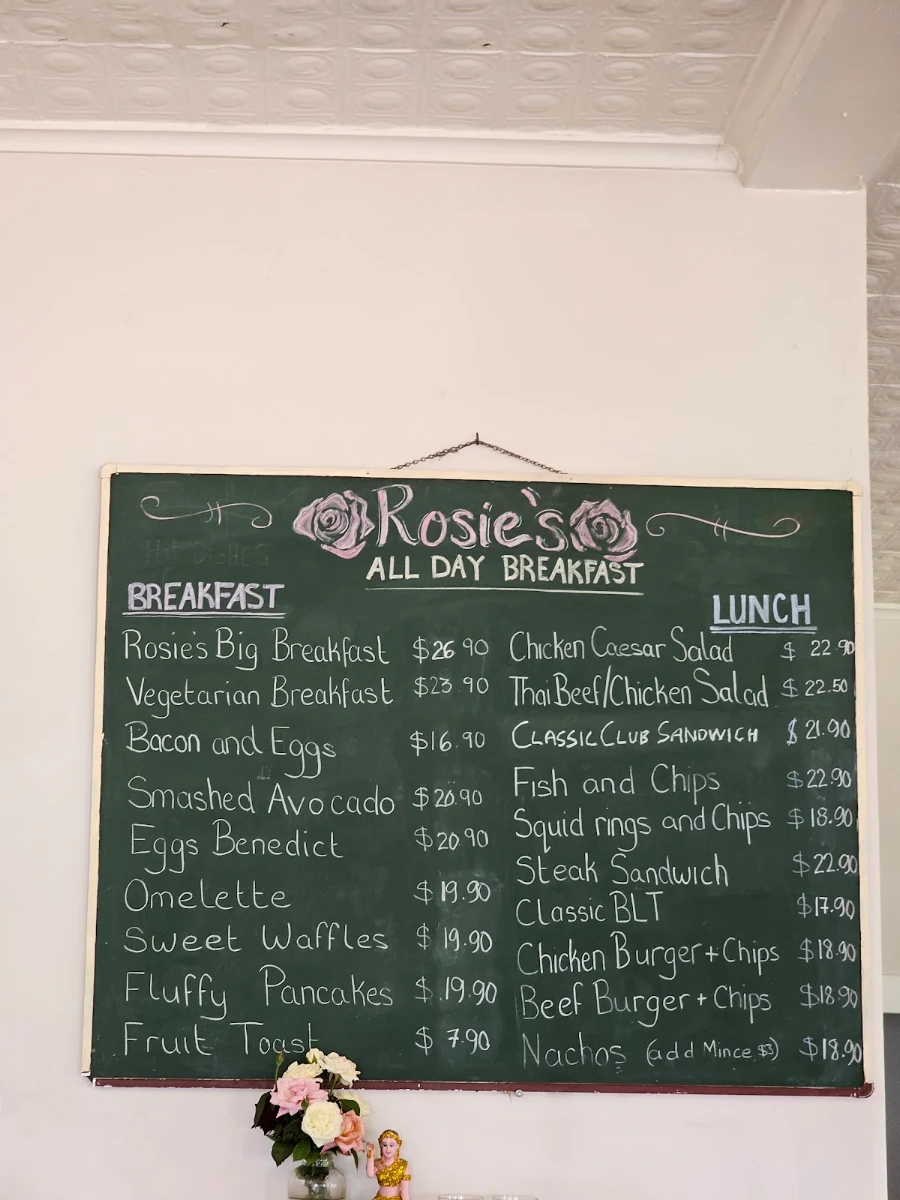 Rosie's
ALL DAY BREAKFAST
HOT DISHES
BREAKFAST
Rosie's Big Breakfast $26.90
Vegetarian Breakfast $23.90
Bacon and Eggs $16.90
Smashed Avocado $20.90
Eggs Benedict $20.90
Omelette $19.90
Sweet Waffles $19.90
Fluffy Pancakes $19.90
Fruit Toast $7.90
LUNCH
Chicken Caesar Salad $22.90
Thai Beef/Chicken Salad $22.50
CLASSIC CLUB SANDWICH $21.90
Fish and Chips $22.90
Squid rings and Chips $18.90
Steak Sandwich $22.90
Classic BLT $17.90
Chicken Burger + Chips $18.90
Beef Burger + Chips $18.90
Nachos (add Mince $3) $18.90